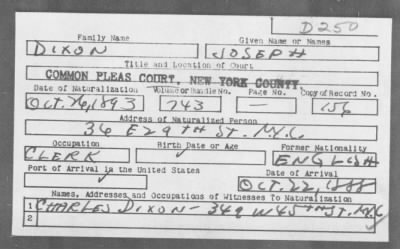 D250
Family Name Given Name or Names
DIXON JOSEPH
Title and Location of Court
COMMON PLEAS COURT, NEW YORK COUNTY
Date of Naturalization Volume or Bundle No. Page No. Copy of Record No.
OCT. 26, 1893 743 156
Address of Naturalized Person
36 E 29TH ST. N.Y.C
Occupation Birth Date or Age Former Nationality
CLERK ENGLISH
Port of Arrival in the United States Date of Arrival
OCT. 22, 1888
Names, Addresses and Occupations of Witnesses To Naturalization
1 CHARLES DIXON - 349 W 45TH ST. N.Y.C
2